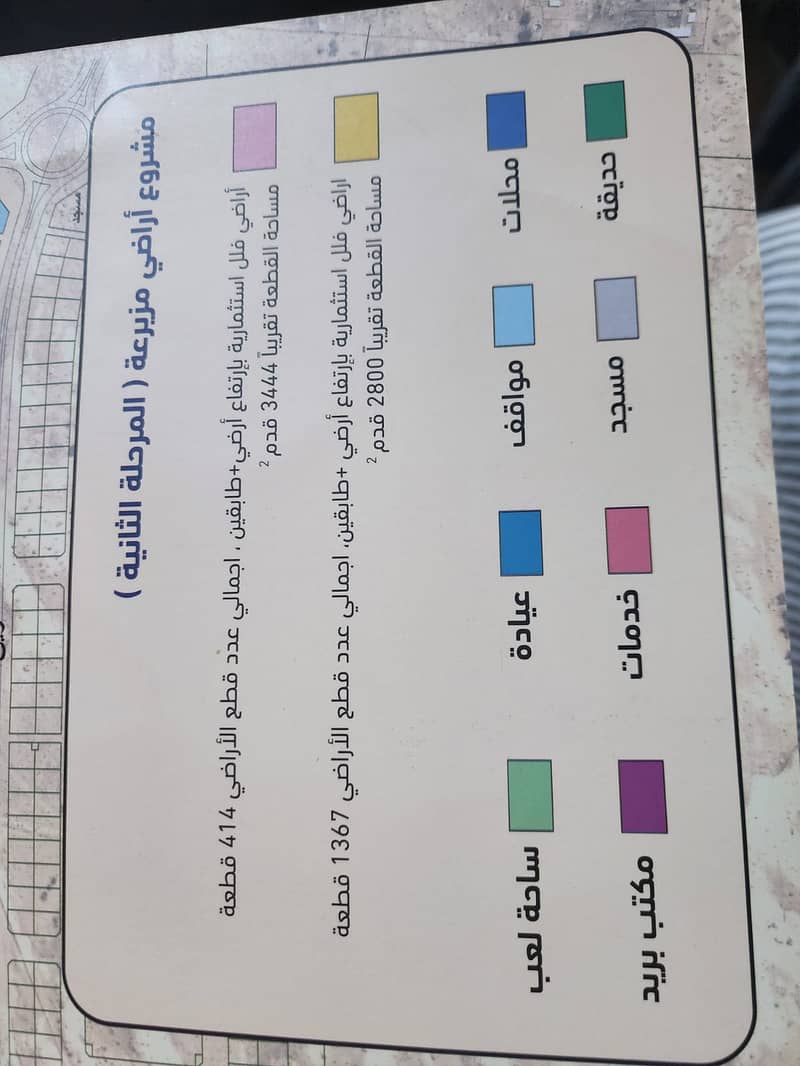 مشروع أراضي مزيرعة ( المرحلة الثانية )
أراضي فلل استثمارية بإرتفاع أرضي+طابقين ، اجمالي عدد قطع الأراضي 414 قطعة
مساحة القطعة تقريباً 3444 قدم ²
اراضي فلل استثمارية بإرتفاع أرضي +طابقين، اجمالي عدد قطع الأراضي 1367 قطعة
مساحة القطعة تقريباً 2800 قدم ²
محلات مواقف عيادة ساحة لعب
حديقة مسجد خدمات مكتب بريد
مسجد